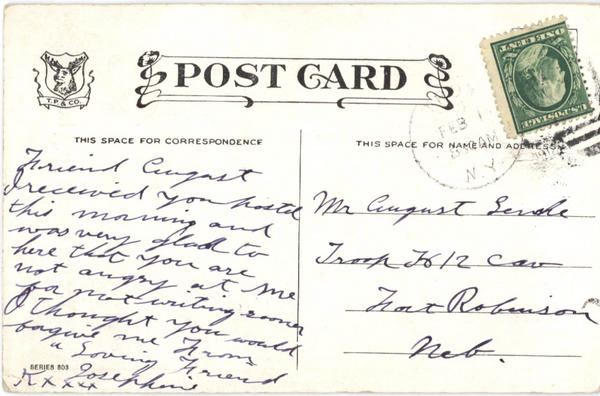 T. P. & CO.
POST CARD
THIS SPACE FOR CORRESPONDENCE
Friend August
I received you postel
this morning and
was very glad to
here that you are
not angry at me
for not writing sooner
I thought you would
forgive me From
a Loving Friend
Josephine
SERIES 503
XXXXX
ONE CENT
U.S. POSTAGE
FEB 1
AM
N.Y.
THIS SPACE FOR NAME AND ADDRESS
Mr August
Troop 12 Cav
Fort Robinson
Neb.